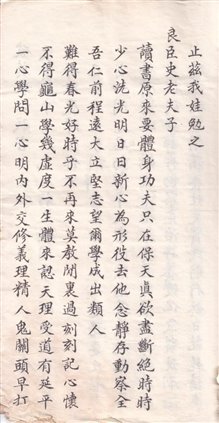 止茲我娃勉之
良臣史老夫子
讀書原來要體身功夫只在保天真欲盡斷絕時時
少心洗光明日日新心為形役去他念靜存動察全
吾仁前程遠大立堅志望爾學成出類人
難得春光好時乎不再來莫教閒裏過刻刻記心懷
不得龜山學幾虛度一生體來認天理受道有延平
一心學問一心明內外交修義理精人鬼關頭早打